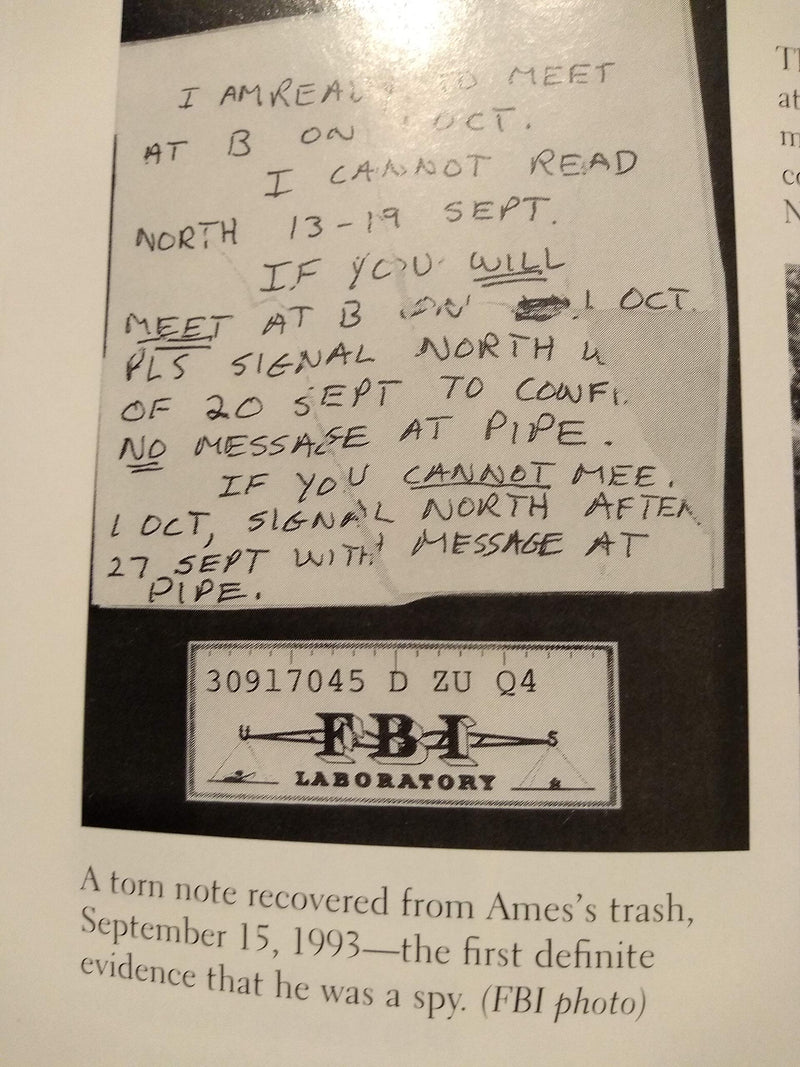 I AM TO MEET
AT B ON OCT.
I CANNOT READ
NORTH 13-19 SEPT.
IF YOU WILL
MEET AT B ON 1 OCT.
PLS SIGNAL NORTH
OF 20 SEPT TO
NO MESSAGE AT PIPE.
IF YOU CANNOT
1 OCT, SIGNAL NORTH AFTER
27 SEPT WITH MESSAGE AT
PIPE.
30917045 D ZU Q4
U FBI S
LABORATORY
A torn note recovered from Ames's trash,
September 15, 1993—the first definite
evidence that he was a spy. (FBI photo)